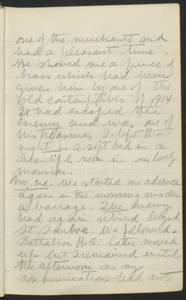 one of the merchants and
had a pleasant time.
He showed me a piece of
brass which had been
given him by one of the
old contemptibles of 1914.
It had escaped the
enemy and was one of
his treasures. I slept that
night in a soft bed in a
beautiful room in a lovely
mansion.
Nov. 2nd. We started in advance
again in the morning under
a barrage. The enemy
had again retired beyond
St Saulve. We followed
Battalion H.Q. later moved
up but I remained until
the afternoon as my
communications had not